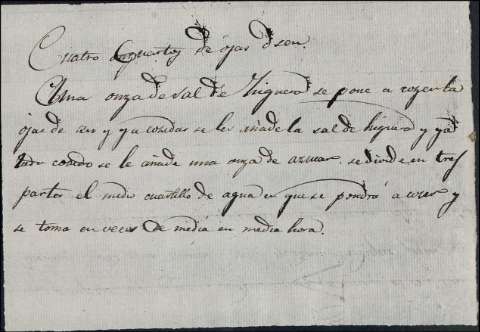 Cuatro quartos de ojas d sen.
Una onza de Sal de Higuera se pone a cozer la
ojas de sen y ya cozidas se les añade la sal de higuera y ya
todo cosido se le añade una onza de azucar, se divide en tres
partes el medio cuartillo de agua en que se pondrá a cozer y
se toma en veces de media en media hora.